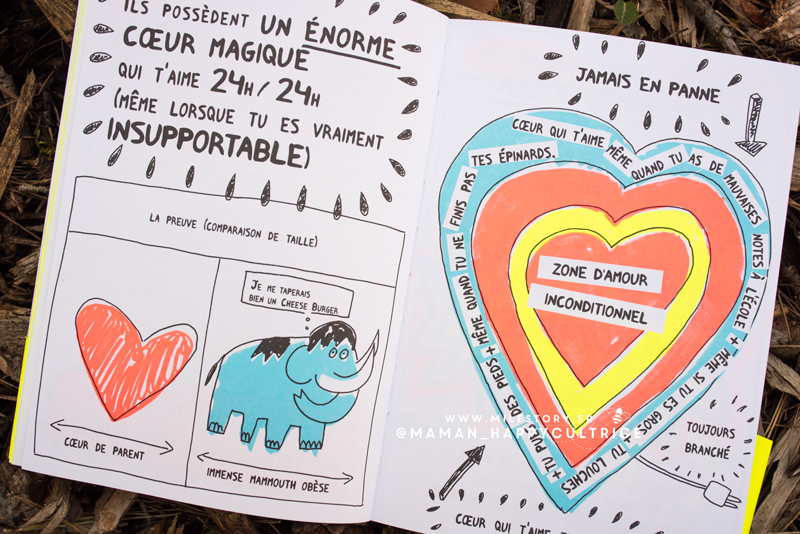 ILS POSSÈDENT UN ÉNORME
CŒUR MAGIQUE
QUI T'AIME 24H/24H
(MÊME LORSQUE TU ES VRAIMENT
INSUPPORTABLE)
LA PREUVE (COMPARAISON DE TAILLE)
JE ME TAPERAIS
BIEN UN CHEESE BURGER
CŒUR DE PARENT
IMMENSE MAMMOUTH OBÈSE
JAMAIS EN PANNE
CŒUR QUI T'AIME MÊME QUAND TU AS DE MAUVAISES NOTES À L'ÉCOLE + MÊME SI TU ES GROS
TU LOUCHES
+ TU PUES DES PIEDS + MÊME QUAND TU NE FINIS PAS TES ÉPINARDS.
ZONE D'AMOUR
INCONDITIONNEL
TOUJOURS
BRANCHÉ
WWW.MILESTORY.FR
@MAMAN_HAPPYCULTRICE
CŒUR QUI T'AIME